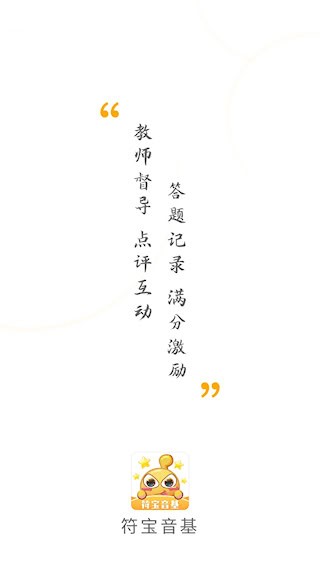 “
教师督导 点评互动
答题记录 满分激励
”
符宝音基
符宝音基